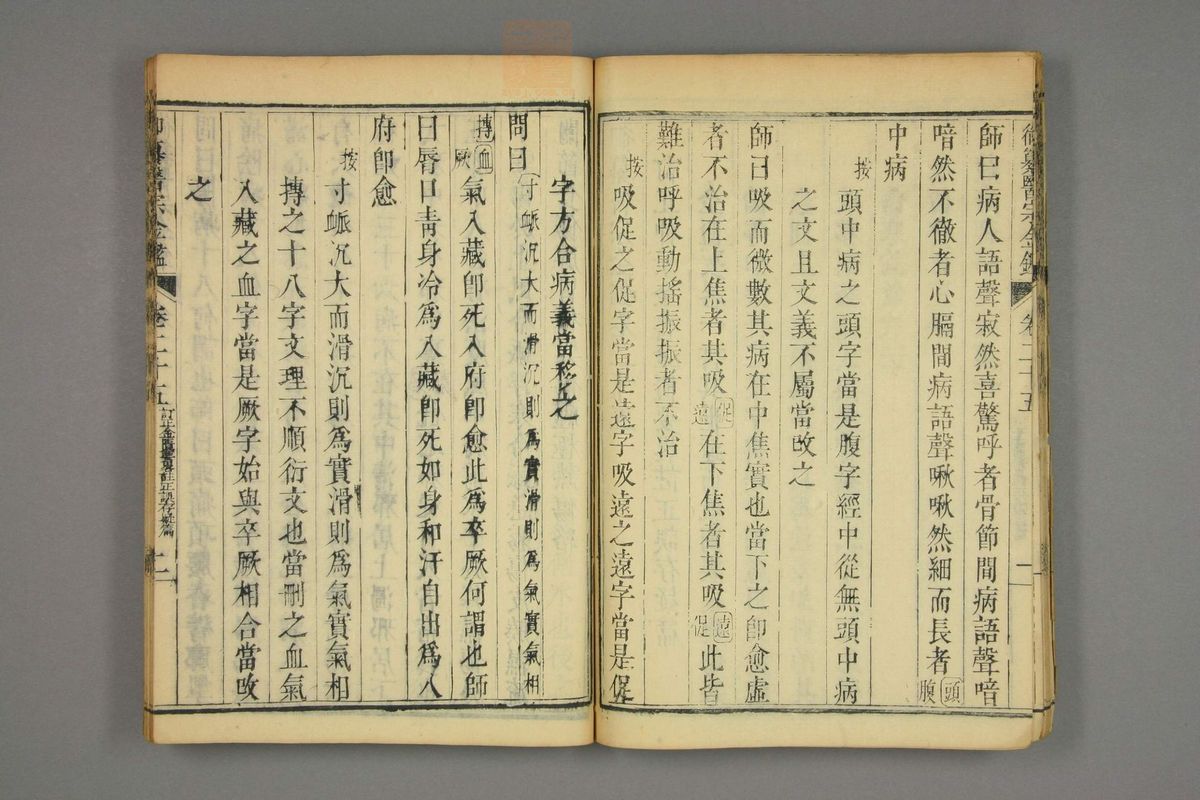 御纂醫宗金鑑 卷二十五 一
師曰病人語聲寂然喜驚呼者骨節間病語聲喑
喑然不徹者心膈間病語聲啾啾然細而長者頭腹
中病
按頭中病之頭字當是腹字經中從無頭中病
之文且文義不屬當改之
師曰吸而微數其病在中焦實也當下之卽愈虛
者不治在上焦者其吸促遠在下焦者其吸遠促此皆
難治呼吸動搖振振者不治
按吸促之促字當是遠字吸遠之遠字當是促
字方合病義當移之
問曰寸脈沉大而滑沉則爲實滑則爲氣實氣相
摶血厥氣入藏卽死入府卽愈此爲卒厥何謂也師
曰脣口青身冷爲入藏卽死如身和汗自出爲入
府卽愈
按寸脈沉大而滑沉則爲實滑則爲氣實氣相
摶之十八字文理不順衍文也當刪之血氣
入藏之血字當是厥字始與卒厥相合當改
之
御纂醫宗金鑑 卷二十五 訂正金匱要略註正誤存疑篇 二